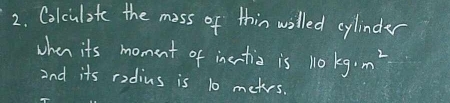 2. Calculate the mass of thin walled cylinder
when its moment of inertia is 110 kg.m²
and its radius is 10 meters.